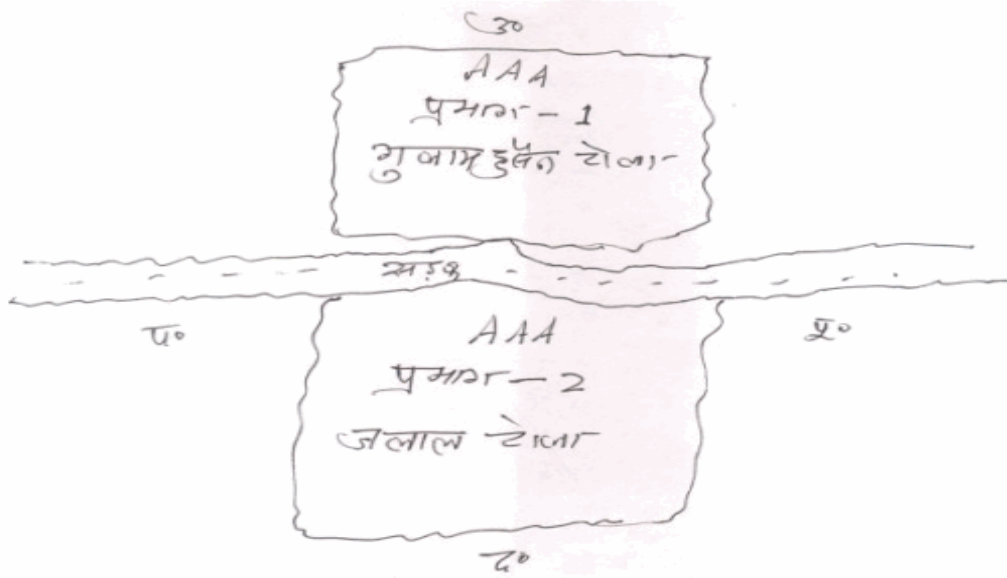 उ०
AAA
प्रभाग - 1
गुलाम हुसैन टोला
सड़क
प०
पू०
AAA
प्रभाग - 2
जलाल टोला
द०